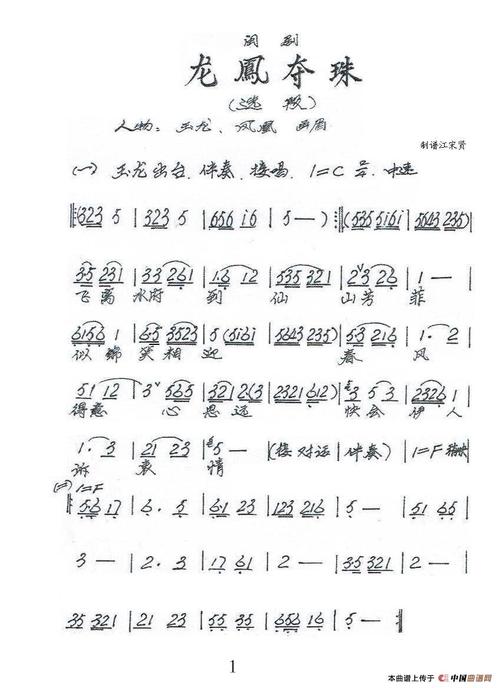 闽剧
龙鳳夺珠
(选段)
人物：玉龙、凤凰 画眉
制谱江宋贤
(一) 玉龙出台、伴奏、接唱、1=C 2/4 中速
‖: 323 5 | 323 5 | 656 i6 | 5 — ) :‖ (535 5i6i | 5643 235) |
35 231 | 33 261 | 1·6 12 | 535 321 | 2 3 216 | 1 — |
飞离水府 到 仙 山芳 菲
6156 1 | 6·5 3523 | 5 (5i6i | 5643 235) | 53 216 | 1· 2 |
似锦笑相迎 春 风
51 12 | 3 565 | 321 2(3 | 2321 612) | 3 5 3 | 2326 1 |
得意 心思远 快会 伊人
1· 3 | 21 23 | 5 — | (接对话 | 伴奏) | 1=F
诉 衷 情
(二) 1=F
56 17 | 6· 5 | 61 23 | 123 216 | 5 — | 51 65 |
3 — | 2· 3 | 17 61 | 2 — | 35 321 | 2 — |
35 321 | 21 23 | 55 35 | 656 16 | 5 — :‖
1
本曲谱上传于 中国曲谱网